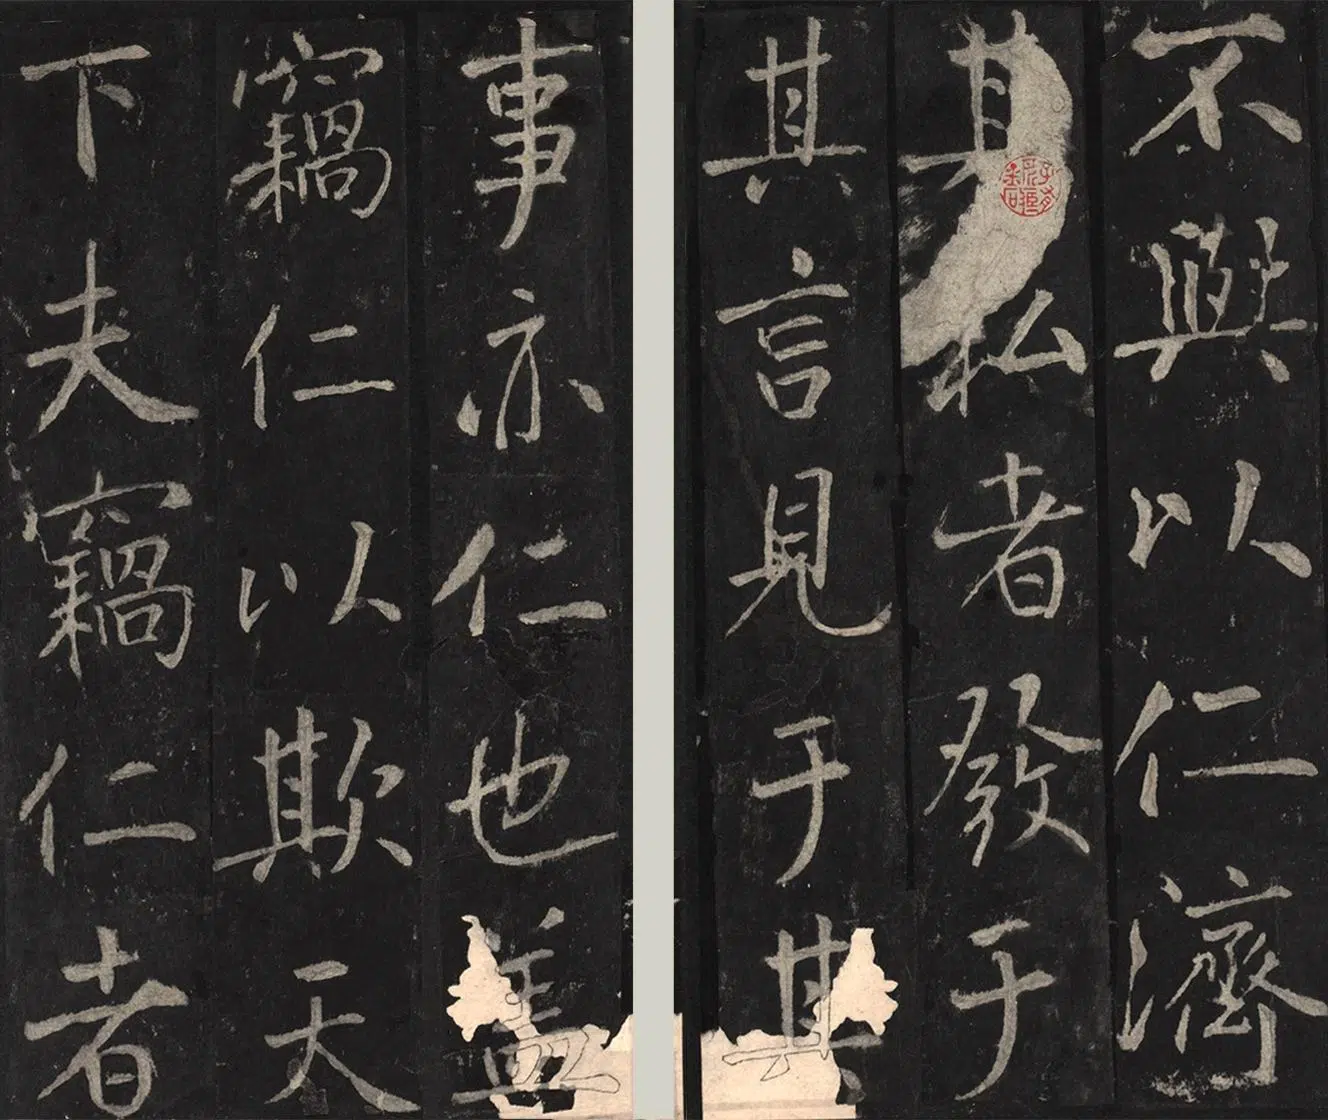 不與以仁濟
其私者發于
其言見于其
事亦仁也蓋
竊仁以欺天
下夫竊仁者